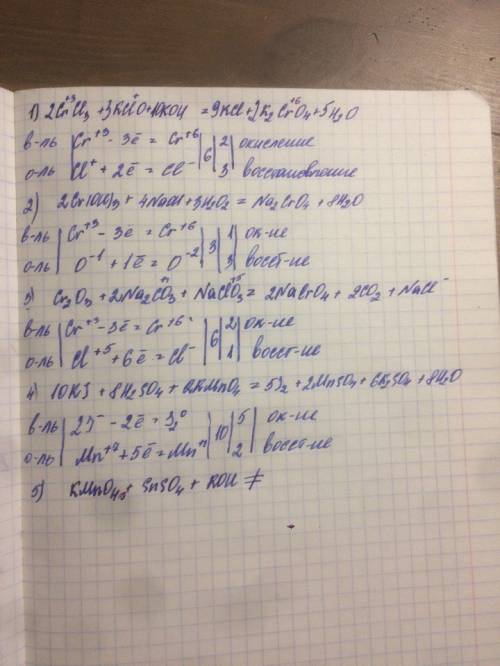 1) 2Cr⁺³Cl₃ + 3KCl⁺O + 10KOH = 9KCl + 2K₂Cr⁺⁶O₄ + 5H₂O
в-ль | Cr⁺³ - 3ē = Cr⁺⁶ | 6 | 2 | окисление
о-ль | Cl⁺ + 2ē = Cl⁻ | 3 восстановление
2) 2Cr(OH)₃ + 4NaOH + 3H₂O₂ = Na₂CrO₄ + 8H₂O
в-ль | Cr⁺³ - 3ē = Cr⁺⁶ | 3 | 1 | ок-ие
о-ль | O⁻¹ + 1ē = O⁻² | 3 | восст-ие
3) Cr₂O₃ + 2Na₂CO₃ + NaClO₃ = 2NaCrO₄ + 2CO₂ + NaCl⁻
в-ль | Cr⁺³ - 3ē = Cr⁺⁶ | 6 | 2 | ок-ие
о-ль | Cl⁺⁵ + 6ē = Cl⁻ | 1 | восст-ие
4) 10KJ + 8H₂SO₄ + 2KMnO₄ = 5J₂ + 2MnSO₄ + 6K₂SO₄ + 8H₂O
в-ль | 2J⁻ - 2ē = J₂⁰ | 10 | 5 | ок-ие
о-ль | Mn⁺⁷ + 5ē = Mn⁺² | 2 | восст-ие
5) KMnO₄ + SnSO₄ + KOH ≠